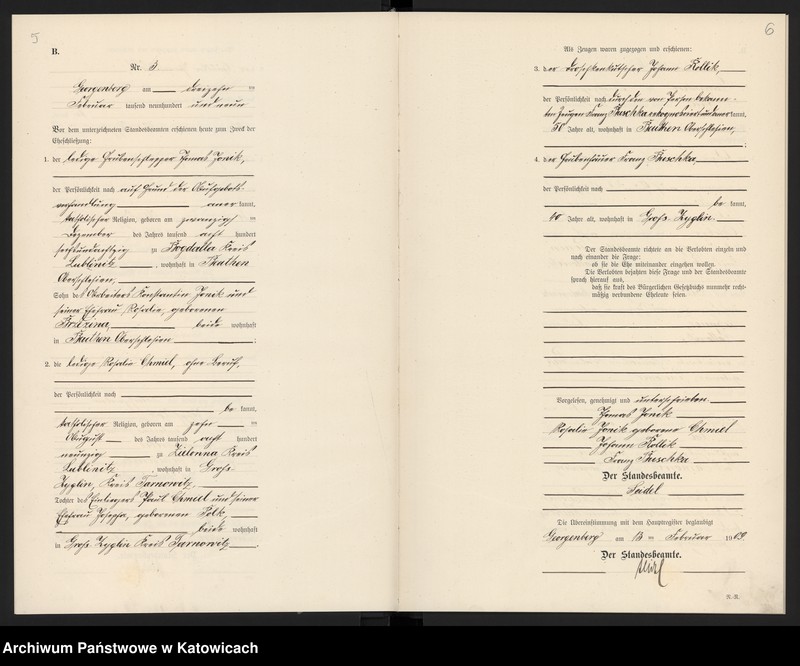 5
B.
Nr. 3
Georgenberg am dreizehnten
Februar tausend neunhundert und neun
Vor dem unterzeichneten Standesbeamten erschienen heute zum Zweck der
Eheschließung:
1. der ledige Grubenschlepper Thomas Jonik,
der Persönlichkeit nach auf Grund der Aufgebots-
verhandlung anerkannt,
katholischer Religion, geboren am zwanzigsten
Dezember des Jahres tausend acht hundert
sechsundachtzig zu Kreis
Lublinitz, wohnhaft in Beuthen
Oberschlesien,
Sohn des Arbeiters Konstantin Jonik und
seiner Ehefrau Rosalie, geborenen
Brzezina, beide wohnhaft
in Beuthen Oberschlesien;
2. die ledige Rosalie Chmiel, ohne Beruf,
der Persönlichkeit nach
bekannt,
katholischer Religion, geboren am zehnten
August des Jahres tausend acht hundert
neunzig zu Zielonna Kreis
Lublinitz, wohnhaft in Gross
Zyglin, Kreis Tarnowitz,
Tochter des Einliegers Paul Chmiel und seiner
Ehefrau Josepha, geborenen Polk,
beide wohnhaft
in Gross Zyglin Kreis Tarnowitz.
6
Als Zeugen waren zugezogen und erschienen:
3. der Droschkenkutscher Johann Kollik,
der Persönlichkeit nach durch den von Person bekann-
ten Zeugen Franz Buschka rekognosziert und anerkannt,
50 Jahre alt, wohnhaft in Beuthen Oberschlesien,
;
4. der Grubenhäuer Franz Buschka,
der Persönlichkeit nach
bekannt,
Jahre alt, wohnhaft in Gross Zyglin.
Der Standesbeamte richtete an die Verlobten einzeln und
nach einander die Frage:
ob sie die Ehe miteinander eingehen wollen.
Die Verlobten bejahten diese Frage und der Standesbeamte
sprach hierauf aus,
daß sie kraft des Bürgerlichen Gesetzbuchs nunmehr recht-
mäßig verbundene Eheleute seien.
Vorgelesen, genehmigt und unterschrieben.
Thomas Jonik
Rosalie Jonik geborene Chmiel
Johann Kollik
Franz Buschka
Der Standesbeamte.
Seidel
Die Übereinstimmung mit dem Hauptregister beglaubigt
Georgenberg am 13 ten Februar 1909.
Der Standesbeamte.
Archiwum Państwowe w Katowicach